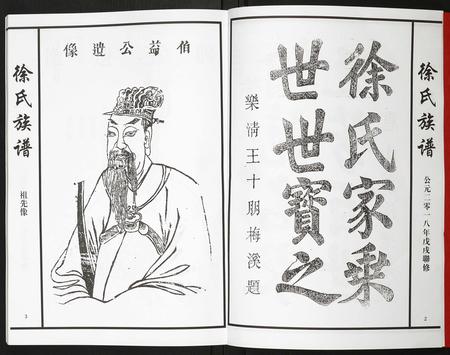 徐氏族谱
公元二零一八年戊戌聯修
2
徐氏家乘
世世寶之
樂清王十朋梅溪題
伯益公遺像
徐氏族谱
祖先像
3